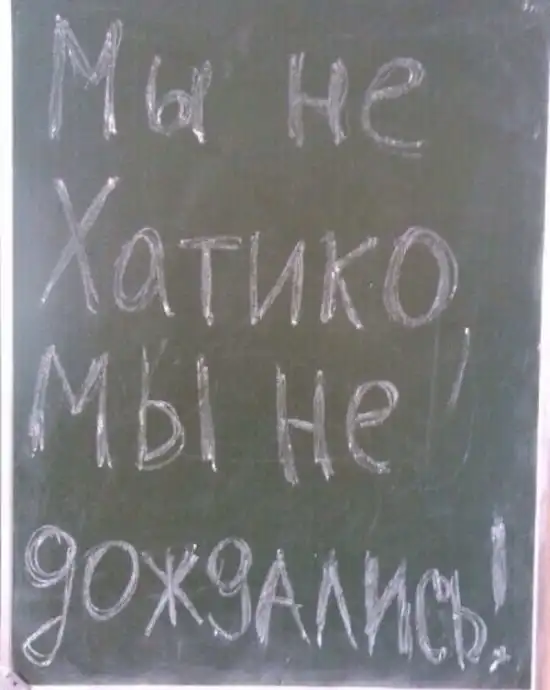 Мы не
Хатико,
мы не
дождались!